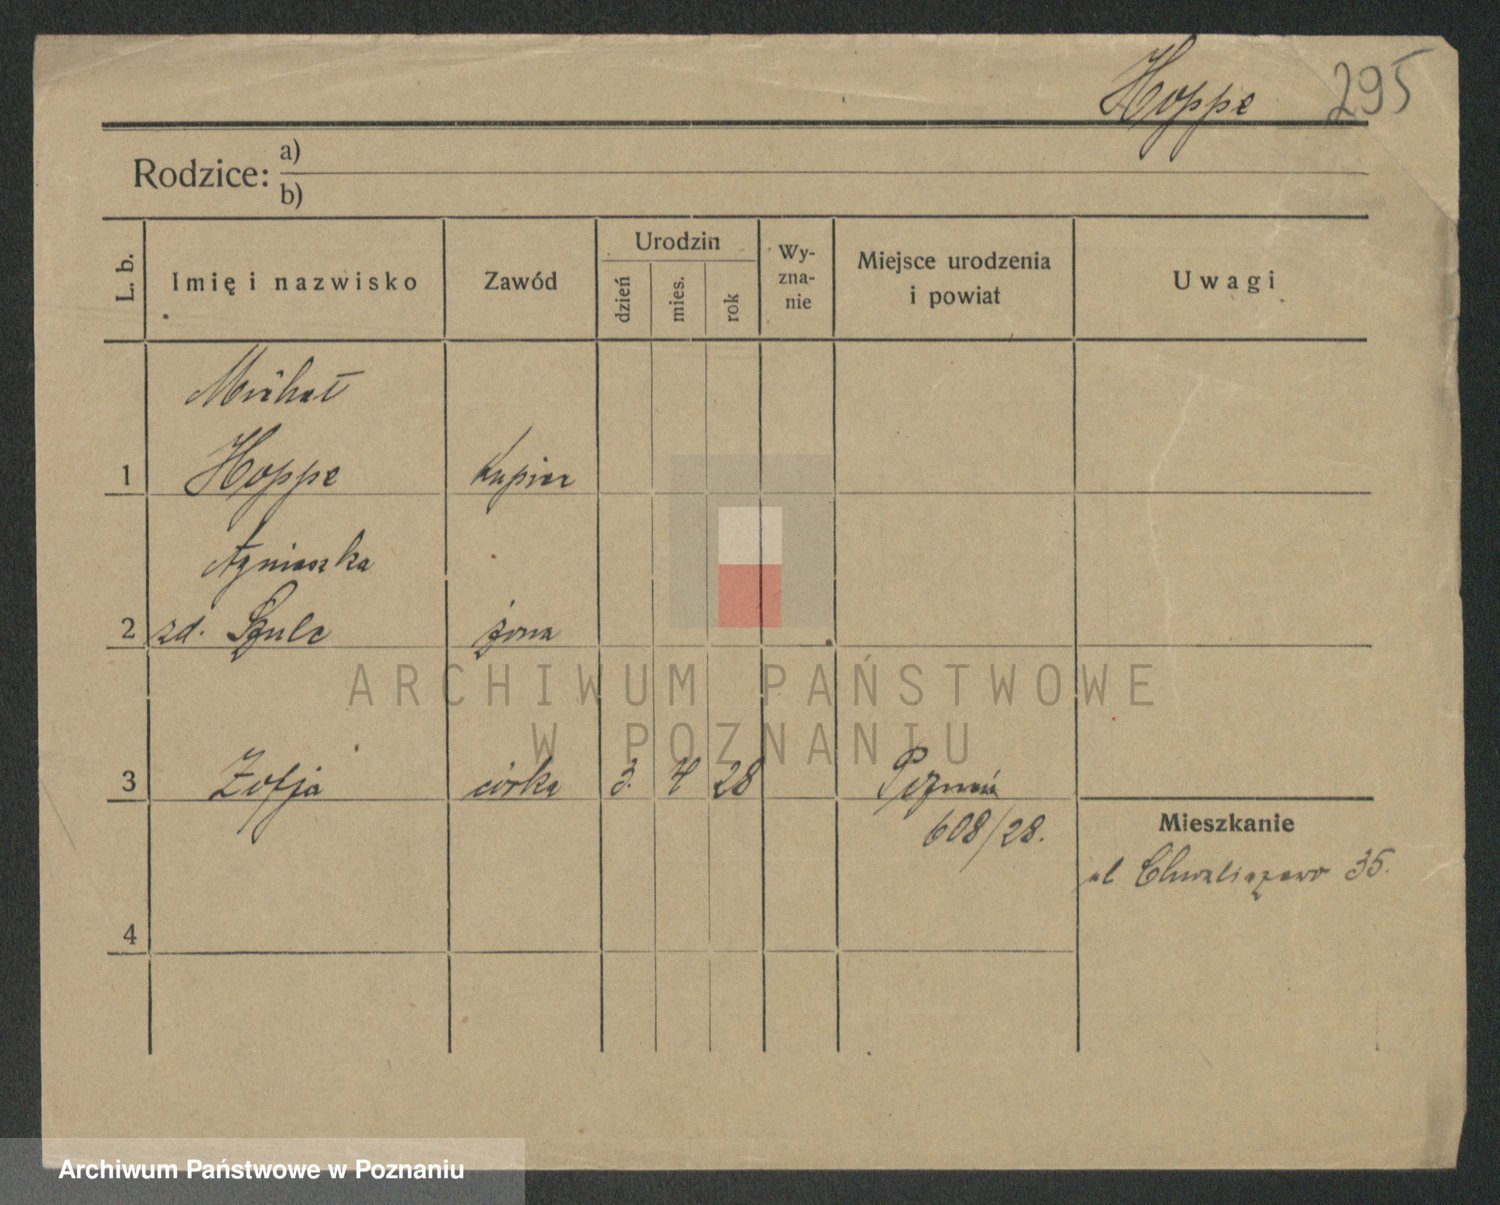 Hoppe 295
Rodzice: a)
b)
L. b.
Imię i nazwisko
Zawód
Urodzin
dzień
mies.
rok
Wy-
zna-
nie
Miejsce urodzenia
i powiat
Uwagi
Michał
1 Hoppe kupiec
Agnieszka
2 zd. Szulc żona
3 Zofja córka 3. 4 28 Poznań
608/28.
Mieszkanie
ul Chwaliszewo 35.
4
ARCHIWUM PAŃSTWOWE
W POZNANIU
Archiwum Państwowe w Poznaniu